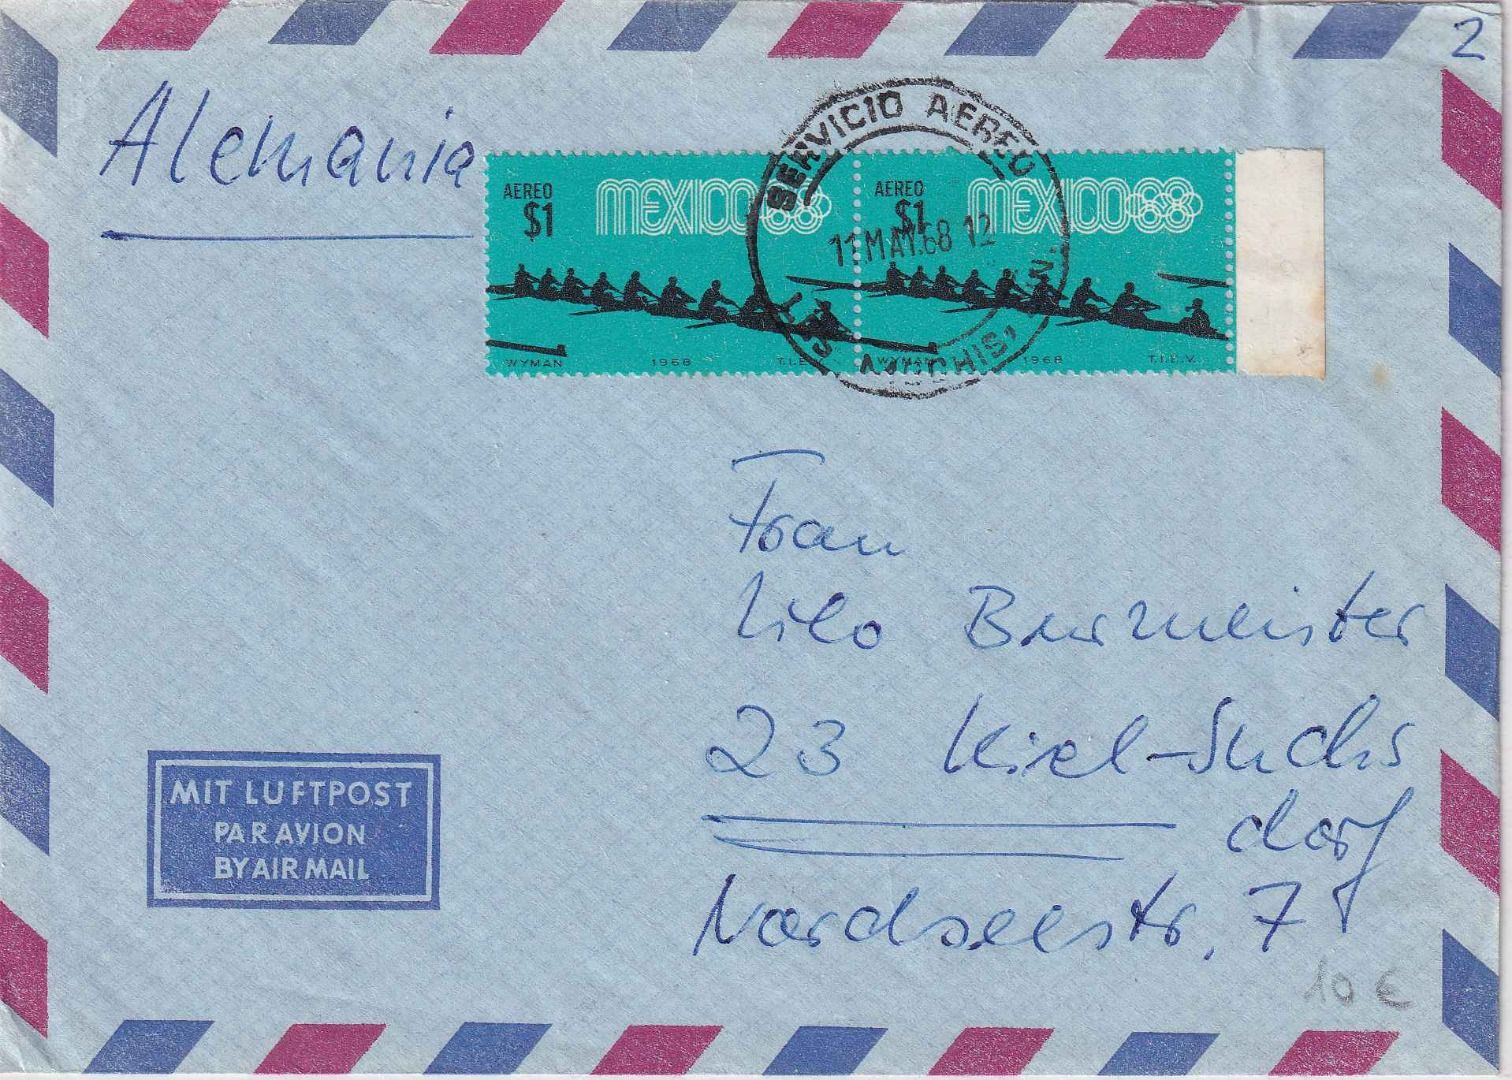 2
Alemania
SERVICIO AEREO
11 MAY. 68 12
LOS MOCHIS, SIN.
AEREO
$1
MEXICO68
WYMAN 1968 T.I.E.V.
AEREO
$1
MEXICO68
WYMAN 1968 T.I.E.V.
Frau
Lilo Burmeister
23 Kiel-Suchs
dorf
Nordseestr. 7
MIT LUFTPOST
PAR AVION
BY AIR MAIL
10 €